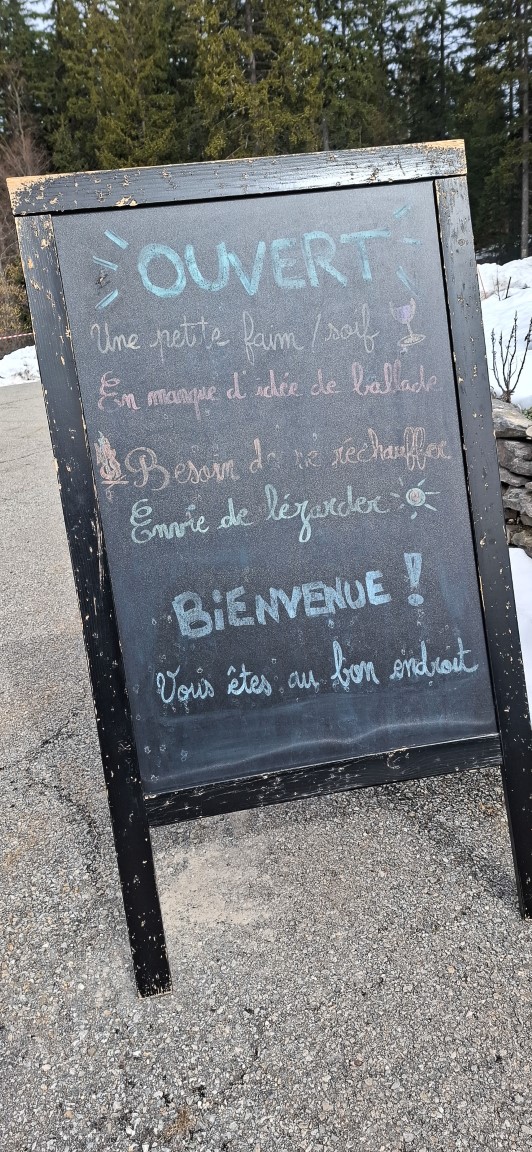 OUVERT
Une petite faim / soif
En manque d'idée de ballade
Besoin de se réchauffer
Envie de lézarder
BiENVENUE !
Vous êtes au bon endroit